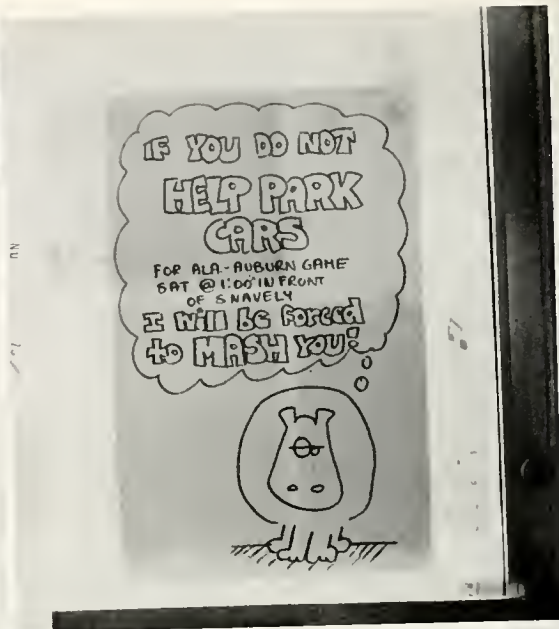 IF YOU DO NOT
HELP PARK
CARS
FOR ALA.-AUBURN GAME
SAT @ 1:00 IN FRONT
OF SNAVELY
I will be forced
to MASH YOU!